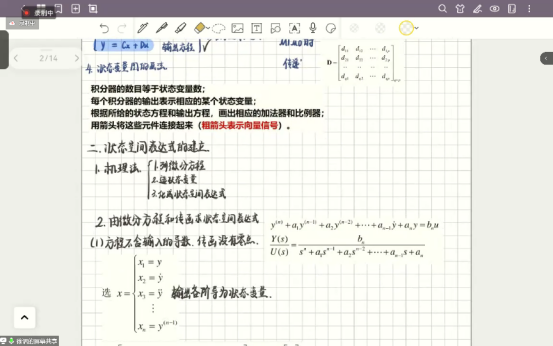 2/14
y = Cx + Du 输出方程
4. 状态变量图的画法
D = [d₁₁ d₁₂ ⋯ d₁ₚ
积分器的数目等于状态变量数；
每个积分器的输出表示相应的某个状态变量；
根据所给的状态方程和输出方程，画出相应的加法器和比例器；
用箭头将这些元件连接起来（粗箭头表示向量信号）。
二、状态空间表达式的建立
1. 机理法
1. 列微分方程
2. 选状态变量
3. 化成状态空间表达式
2. 由微分方程和传函求状态空间表达式
(1) 方程不含输入的导数，传函没有零点.
y⁽ⁿ⁾ + a₁y⁽ⁿ⁻¹⁾ + a₂y⁽ⁿ⁻²⁾ + ⋯ + aₙ₋₁ẏ + aₙy = bₙu
Y(s)/U(s) = bₙ/(sⁿ + a₁sⁿ⁻¹ + a₂sⁿ⁻² + ⋯ + aₙ₋₁s + aₙ)
选 x =
x₁ = y
x₂ = ẏ
x₃ = ÿ
⋮
xₙ = y⁽ⁿ⁻¹⁾
输出各阶导为状态变量.